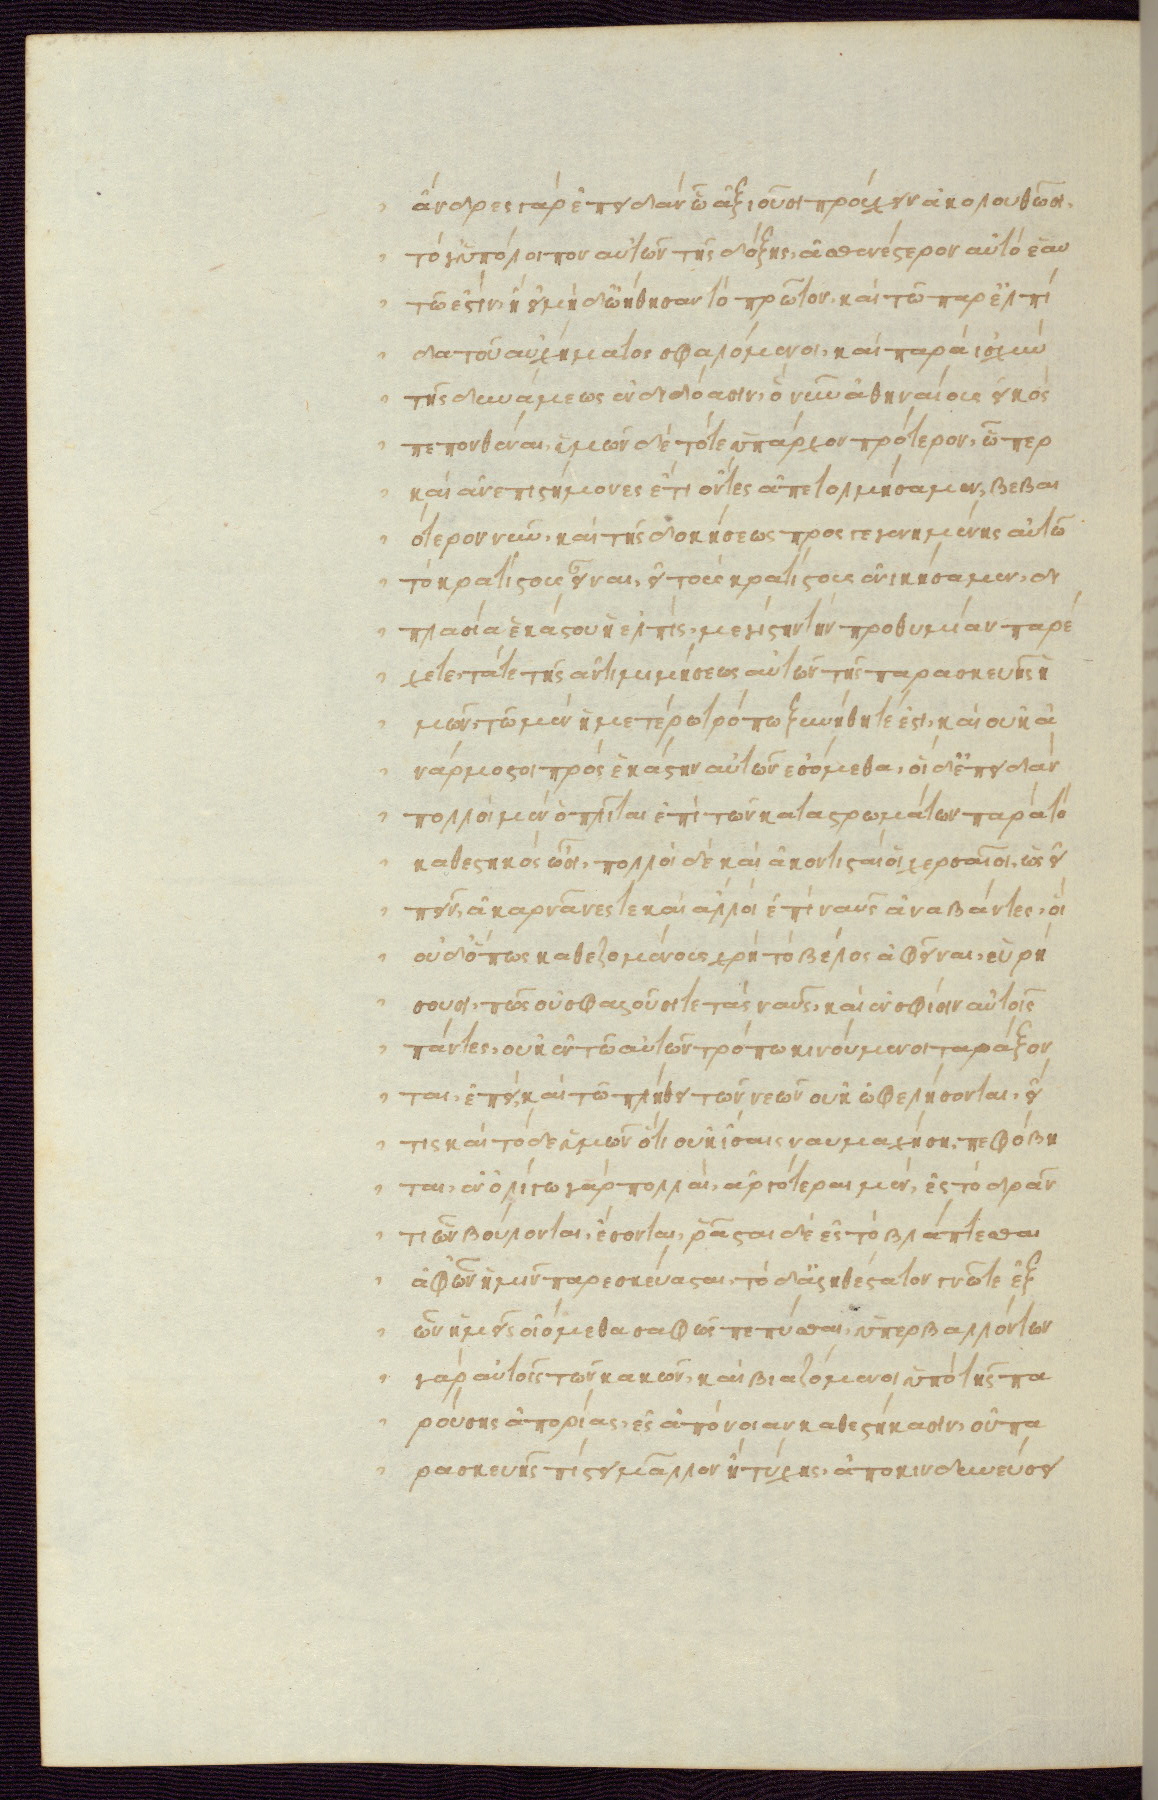 ἄνδρες γὰρ ἐπειδὰν ὧ ἀξιοῦσι προύχειν ἀκολουθῶσι,
τό γ' ὑπόλοιπον αὐτῶν τῆς δόξης, ἀσθενέστερον αὐτὸ ἑαυ
τῶ ἐστὶν, ἢ εἰ μὴ δ' ὠήθησαν τὸ πρῶτον, καὶ τῶ παρ' ἐλπί
δα τοῦ αὐχήματος σφαλόμενοι, καὶ παρὰ ἰσχὺν
τῆς δυνάμεως ἐνδιδόασιν, ὃ νῦν ἀθηναίοις εἰκὸς
πεπονθέναι, ἡμῶν δὲ τό τε ὑπάρχον πρότερον, ὧπερ
καὶ ἀνεπιστήμονες ἔτι ὄντες ἀπετολμήσαμεν, βεβαι
ότερον νῦν, καὶ τῆς δοκήσεως προσγεγενημένης αὐτῶ
τὸ κρατίστους εἶναι, εἰ τοὺς κρατίστους ἐνικήσαμεν, δι
πλασία ἑκάστου ἡ ἐλπὶς, μεγίστην τὴν προθυμίαν παρέ
χεται, τά τε τῆς ἀντιμιμήσεως αὐτῶν τῆς παρασκευῆς ἡ
μῶν, τῶ μὲν ἡμετέρω τρόπω ξυνήθη τέ ἐστι, καὶ οὐκ ἀ
νάρμοστοι πρὸς ἑκάστην αὐτῶν ἐσόμεθα, οἱ δ' ἐπειδὰν
πολλοὶ μὲν ὁπλῖται ἐπὶ τῶν καταστρωμάτων παρὰ τὸ
καθεστηκὸς ὦσι, πολλοὶ δὲ καὶ ἀκοντισταὶ οἱ χερσαῖοι, ὡς εἰ
πεῖν, ἀκαρνᾶνές τε καὶ ἄλλοι ἐπὶ ναῦς ἀναβάντες, οἳ
οὐδ' ὅπως καθεζομένους χρὴ τὸ βέλος ἀφεῖναι, εὑρή
σουσι, πῶς οὐ σφαλοῦσί τε τὰς ναῦς, καὶ ἐν σφίσιν αὐτοῖς
πάντες, οὐκ ἐν τῶ αὐτῶν τρόπω κινούμενοι ταράξον
ται, ἐπεὶ καὶ τῶ πλήθει τῶν νεῶν οὐκ ὠφελήσονται, εἴ
τις καὶ τόδε ἡμῶν ὅτι οὐκ ἴσαις ναυμαχήσει, πεφόβη
ται, ἐν ὀλίγω γὰρ πολλαὶ, ἀργότεραι μὲν, ἐς τὸ δρᾶν
τι ὧν βούλονται, ἔσονται, ῥᾶσται δὲ ἐς τὸ βλάπτεσθαι
ἀφ' ὧν ἡμῖν παρεσκεύασται, τὸ δ' ἀληθέστατον γνῶτε ἐξ
ὧν ἡμεῖς οἰόμεθα σαφῶς πεπύσθαι, ὑπερβαλλόντων
γὰρ αὐτοῖς τῶν κακῶν, καὶ βιαζόμενοι ὑπὸ τῆς πα
ρούσης ἀπορίας, ἐς ἀπόνοιαν καθεστήκασιν, οὐ πα
ρασκευῆς πίστει μᾶλλον ἢ τύχης, ἀποκινδυνεύσει